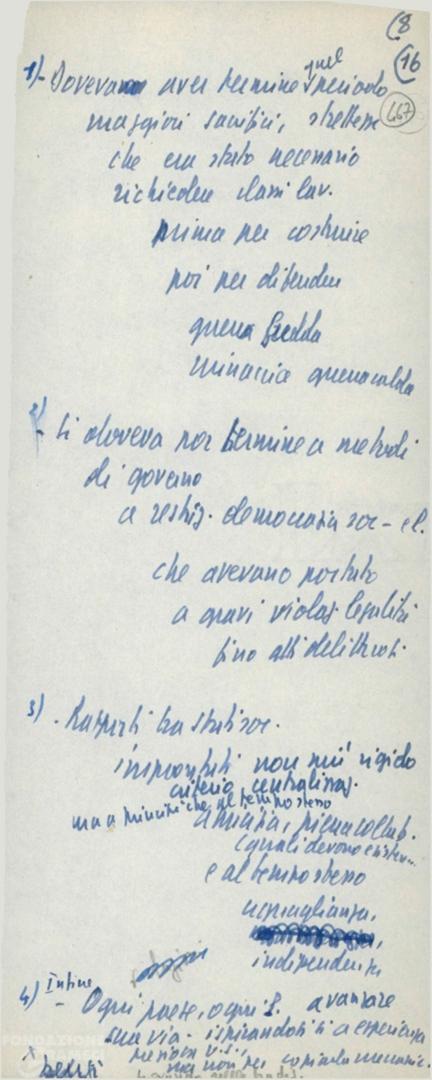 (8
(16
467
1)- Dovevano aver termine quel periodo
maggiori sacrifici, strettezze
che era stato necessario
richiedere classi lav.
prima per costruire
poi per difendere
guerra fredda
minaccia guerra calda
2)
- Si doveva por termine a metodi
di governo
a restriz. democrazia soc-
che avevano portato
a gravi violaz. legalità
fino atti delittuosi
3) - Rapporti tra stati soc.
improntati non più rigido
criterio centralizzaz.
ma a principi che al tempo stesso
amicizia, piena collab.
(quali devono esistere
e al tempo stesso
uguaglianza,
indipendenza
4) Infine
- Ogni paese, ogni P. avanzare
sua via - ispirandosi sì a esperienza
ma non per copiarla meccanic.
FONDAZIONE
GRAMSCI